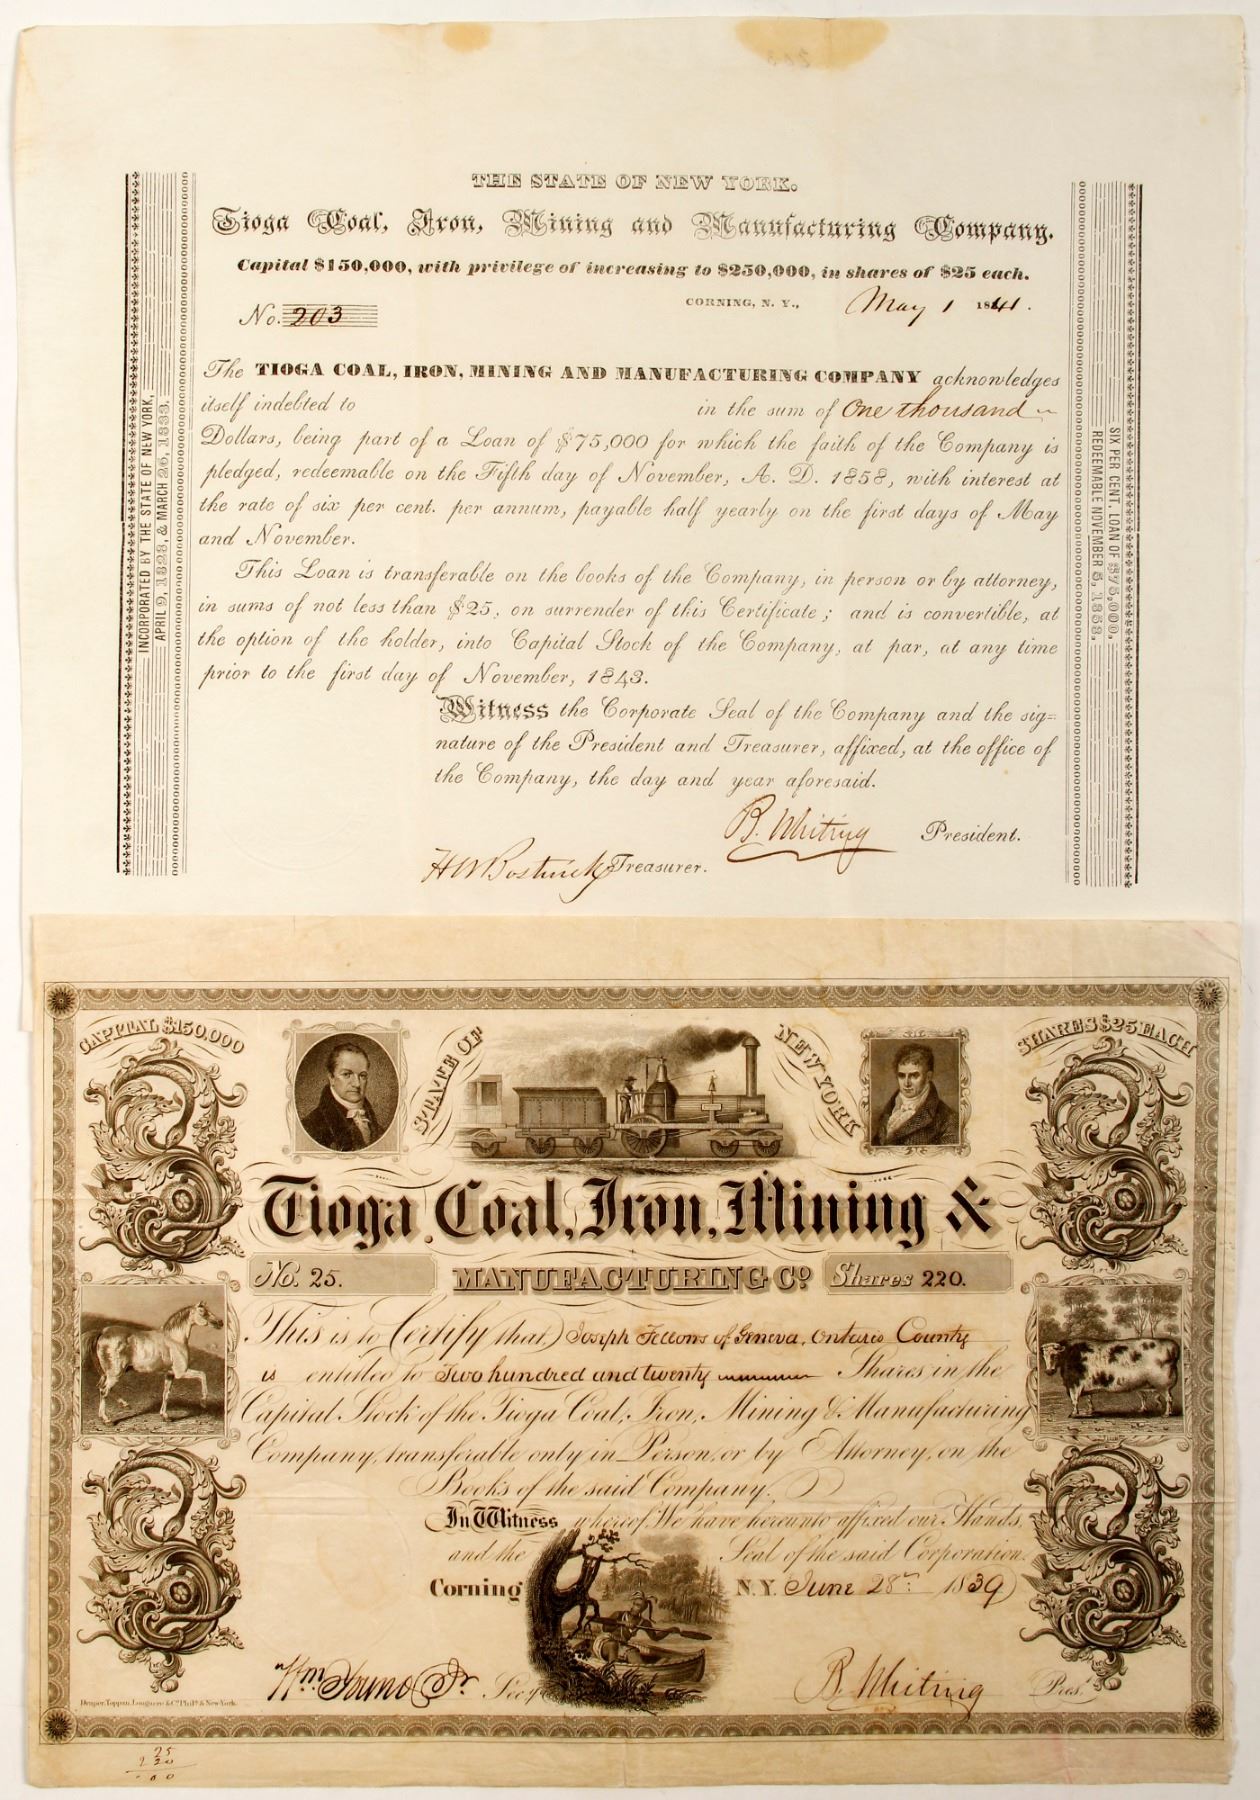 THE STATE OF NEW YORK.
Tioga Coal, Iron, Mining and Manufacturing Company.
Capital $150,000, with privilege of increasing to $250,000, in shares of $25 each.
CORNING, N. Y., May 1 1841.
No. 203
The TIOGA COAL, IRON, MINING AND MANUFACTURING COMPANY acknowledges
itself indebted to in the sum of One thousand
Dollars, being part of a Loan of $75,000 for which the faith of the Company is
pledged, redeemable on the Fifth day of November, A. D. 1858, with interest at
the rate of six per cent. per annum, payable half yearly on the first days of May
and November.
This Loan is transferable on the books of the Company, in person or by attorney,
in sums of not less than $25, on surrender of this Certificate; and is convertible, at
the option of the holder, into Capital Stock of the Company, at par, at any time
prior to the first day of November, 1843.
Witness the Corporate Seal of the Company and the sig=
nature of the President and Treasurer, affixed, at the office of
the Company, the day and year aforesaid.
B. Whiting President.
H W Bostwick Treasurer.
INCORPORATED BY THE STATE OF NEW YORK,
APRIL 9, 1828, & MARCH 26, 1833.
SIX PER CENT. LOAN OF $75,000.
REDEEMABLE NOVEMBER 5, 1858.
CAPITAL $150,000
STATE OF NEW YORK
SHARES $25 EACH
Tioga Coal, Iron, Mining &
No. 25. MANUFACTURING Co Shares 220.
This is to Certify that Joseph Fellows of Geneva, Ontario County
is entitled to Two hundred and twenty Shares in the
Capital Stock of the Tioga Coal, Iron, Mining & Manufacturing
Company, transferable only in Person, or by Attorney, on the
Books of the said Company.
In Witness whereof We have hereunto affixed our Hands,
and the Seal of the said Corporation.
Corning N.Y. June 28th 1839
Wm Jr. Secy B. Whiting Pres.
Draper, Toppan, Longacre & Co. Phila. & New York.
25
220